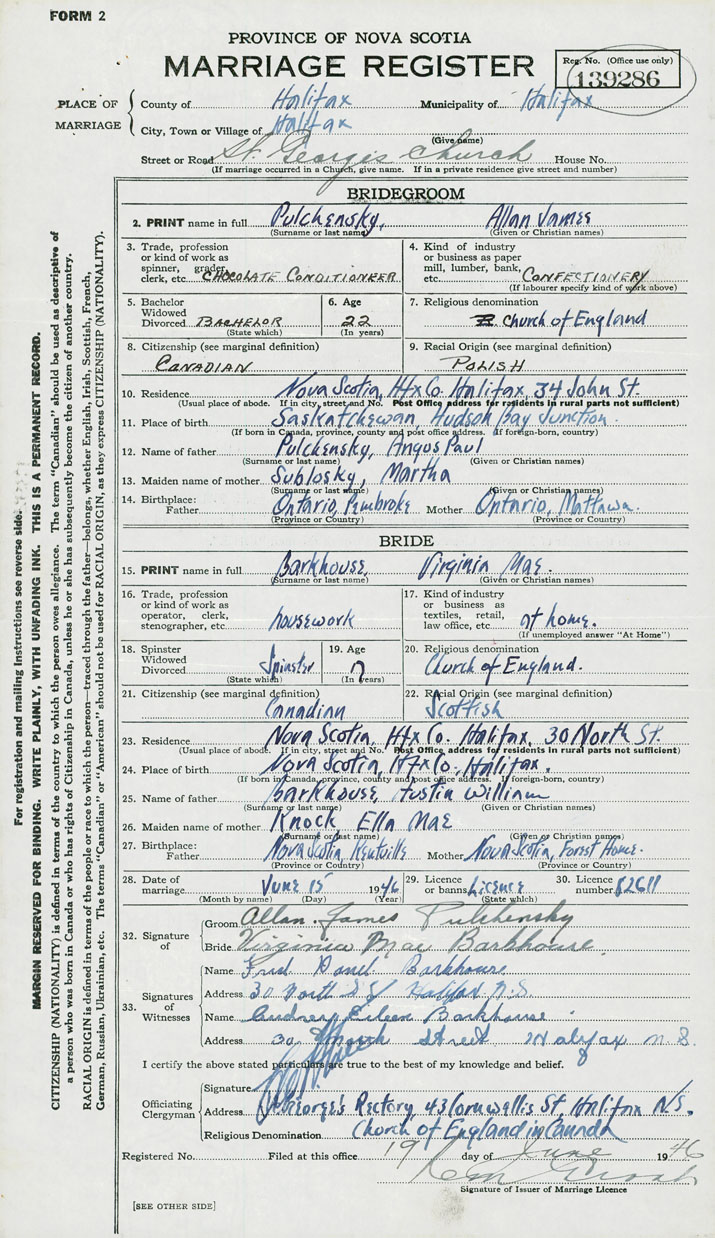 FORM 2
PROVINCE OF NOVA SCOTIA
MARRIAGE REGISTER
Reg. No. (Office use only)
139286
PLACE OF MARRIAGE
County of Halifax Municipality of Halifax
City, Town or Village of Halifax
(Give name)
Street or Road St. George's Church House No.
(If marriage occurred in a Church, give name. If in a private residence give street and number)
BRIDEGROOM
2. PRINT name in full Pulchensky, Allan James
(Surname or last name) (Given or Christian names)
3. Trade, profession or kind of work as spinner, grader, clerk, etc. CHOCOLATE CONDITIONER
4. Kind of industry or business as paper mill, lumber, bank, etc. CONFECTIONERY
(If labourer specify kind of work above)
5. Bachelor Widowed Divorced BACHELOR
(State which)
6. Age 22
(In years)
7. Religious denomination Church of England
8. Citizenship (see marginal definition) CANADIAN
9. Racial Origin (see marginal definition) POLISH
10. Residence Nova Scotia, Hfx Co. Halifax, 34 John St.
(Usual place of abode. If in city, street and No. Post Office address for residents in rural parts not sufficient)
11. Place of birth Saskatchewan, Hudson Bay Junction.
(If born in Canada, province, county and post office address. If foreign-born, country)
12. Name of father Pulchensky, Angus Paul
(Surname or last name) (Given or Christian names)
13. Maiden name of mother Sublosky, Martha
(Surname or last name) (Given or Christian names)
14. Birthplace: Father Ontario, Pembroke Mother Ontario, Mattawa.
(Province or Country) (Province or Country)
BRIDE
15. PRINT name in full Barkhouse, Virginia Mae.
(Surname or last name) (Given or Christian names)
16. Trade, profession or kind of work as operator, clerk, stenographer, etc. housework
17. Kind of industry or business as textiles, retail, law office, etc. at home.
(If unemployed answer "At Home")
18. Spinster Widowed Divorced Spinster
(State which)
19. Age
(In years)
20. Religious denomination Church of England.
21. Citizenship (see marginal definition) Canadian
22. Racial Origin (see marginal definition) Scottish
23. Residence Nova Scotia, Hfx Co. Halifax, 30 North St.
(Usual place of abode. If in city, street and No. Post Office address for residents in rural parts not sufficient)
24. Place of birth Nova Scotia, Hfx Co., Halifax.
(If born in Canada, province, county and post office address. If foreign-born, country)
25. Name of father Barkhouse, Austin William
(Surname or last name) (Given or Christian names)
26. Maiden name of mother Knock Ella Mae
(Surname or last name) (Given or Christian names)
27. Birthplace: Father Nova Scotia, Kentville Mother Nova Scotia, Forest Home.
(Province or Country) (Province or Country)
28. Date of marriage June 15 1946
(Month by name) (Day) (Year)
29. Licence or banns Licence
(State which)
30. Licence number 82611
32. Signature of
Groom Allan James Pulchensky
Bride Virginia Mae Barkhouse.
33. Signatures of Witnesses
Name Fred Barkhouse
Address 30 North St Halifax N.S.
Name Audrey Eileen Barkhouse
Address 30 North Street Halifax N.S.
I certify the above stated particulars are true to the best of my knowledge and belief.
Officiating Clergyman
Signature
Address St George's Rectory 43 Cornwallis St, Halifax N.S.
Religious Denomination Church of England in Canada
Registered No. Filed at this office 19 day of June 1946
Signature of Issuer of Marriage Licence
[SEE OTHER SIDE]
For registration and mailing instructions see reverse side.
MARGIN RESERVED FOR BINDING. WRITE PLAINLY, WITH UNFADING INK. THIS IS A PERMANENT RECORD.
CITIZENSHIP (NATIONALITY) is defined in terms of the country to which the person owes allegiance. The term "Canadian" should be used as descriptive of
a person who was born in Canada or who has rights of Citizenship in Canada, unless he or she has subsequently become the citizen of another country.
RACIAL ORIGIN is defined in terms of the people or race to which the person—traced through the father—belongs, whether English, Irish, Scottish, French,
German, Russian, Ukrainian, etc. The terms "Canadian" or "American" should not be used for RACIAL ORIGIN, as they express CITIZENSHIP (NATIONALITY).